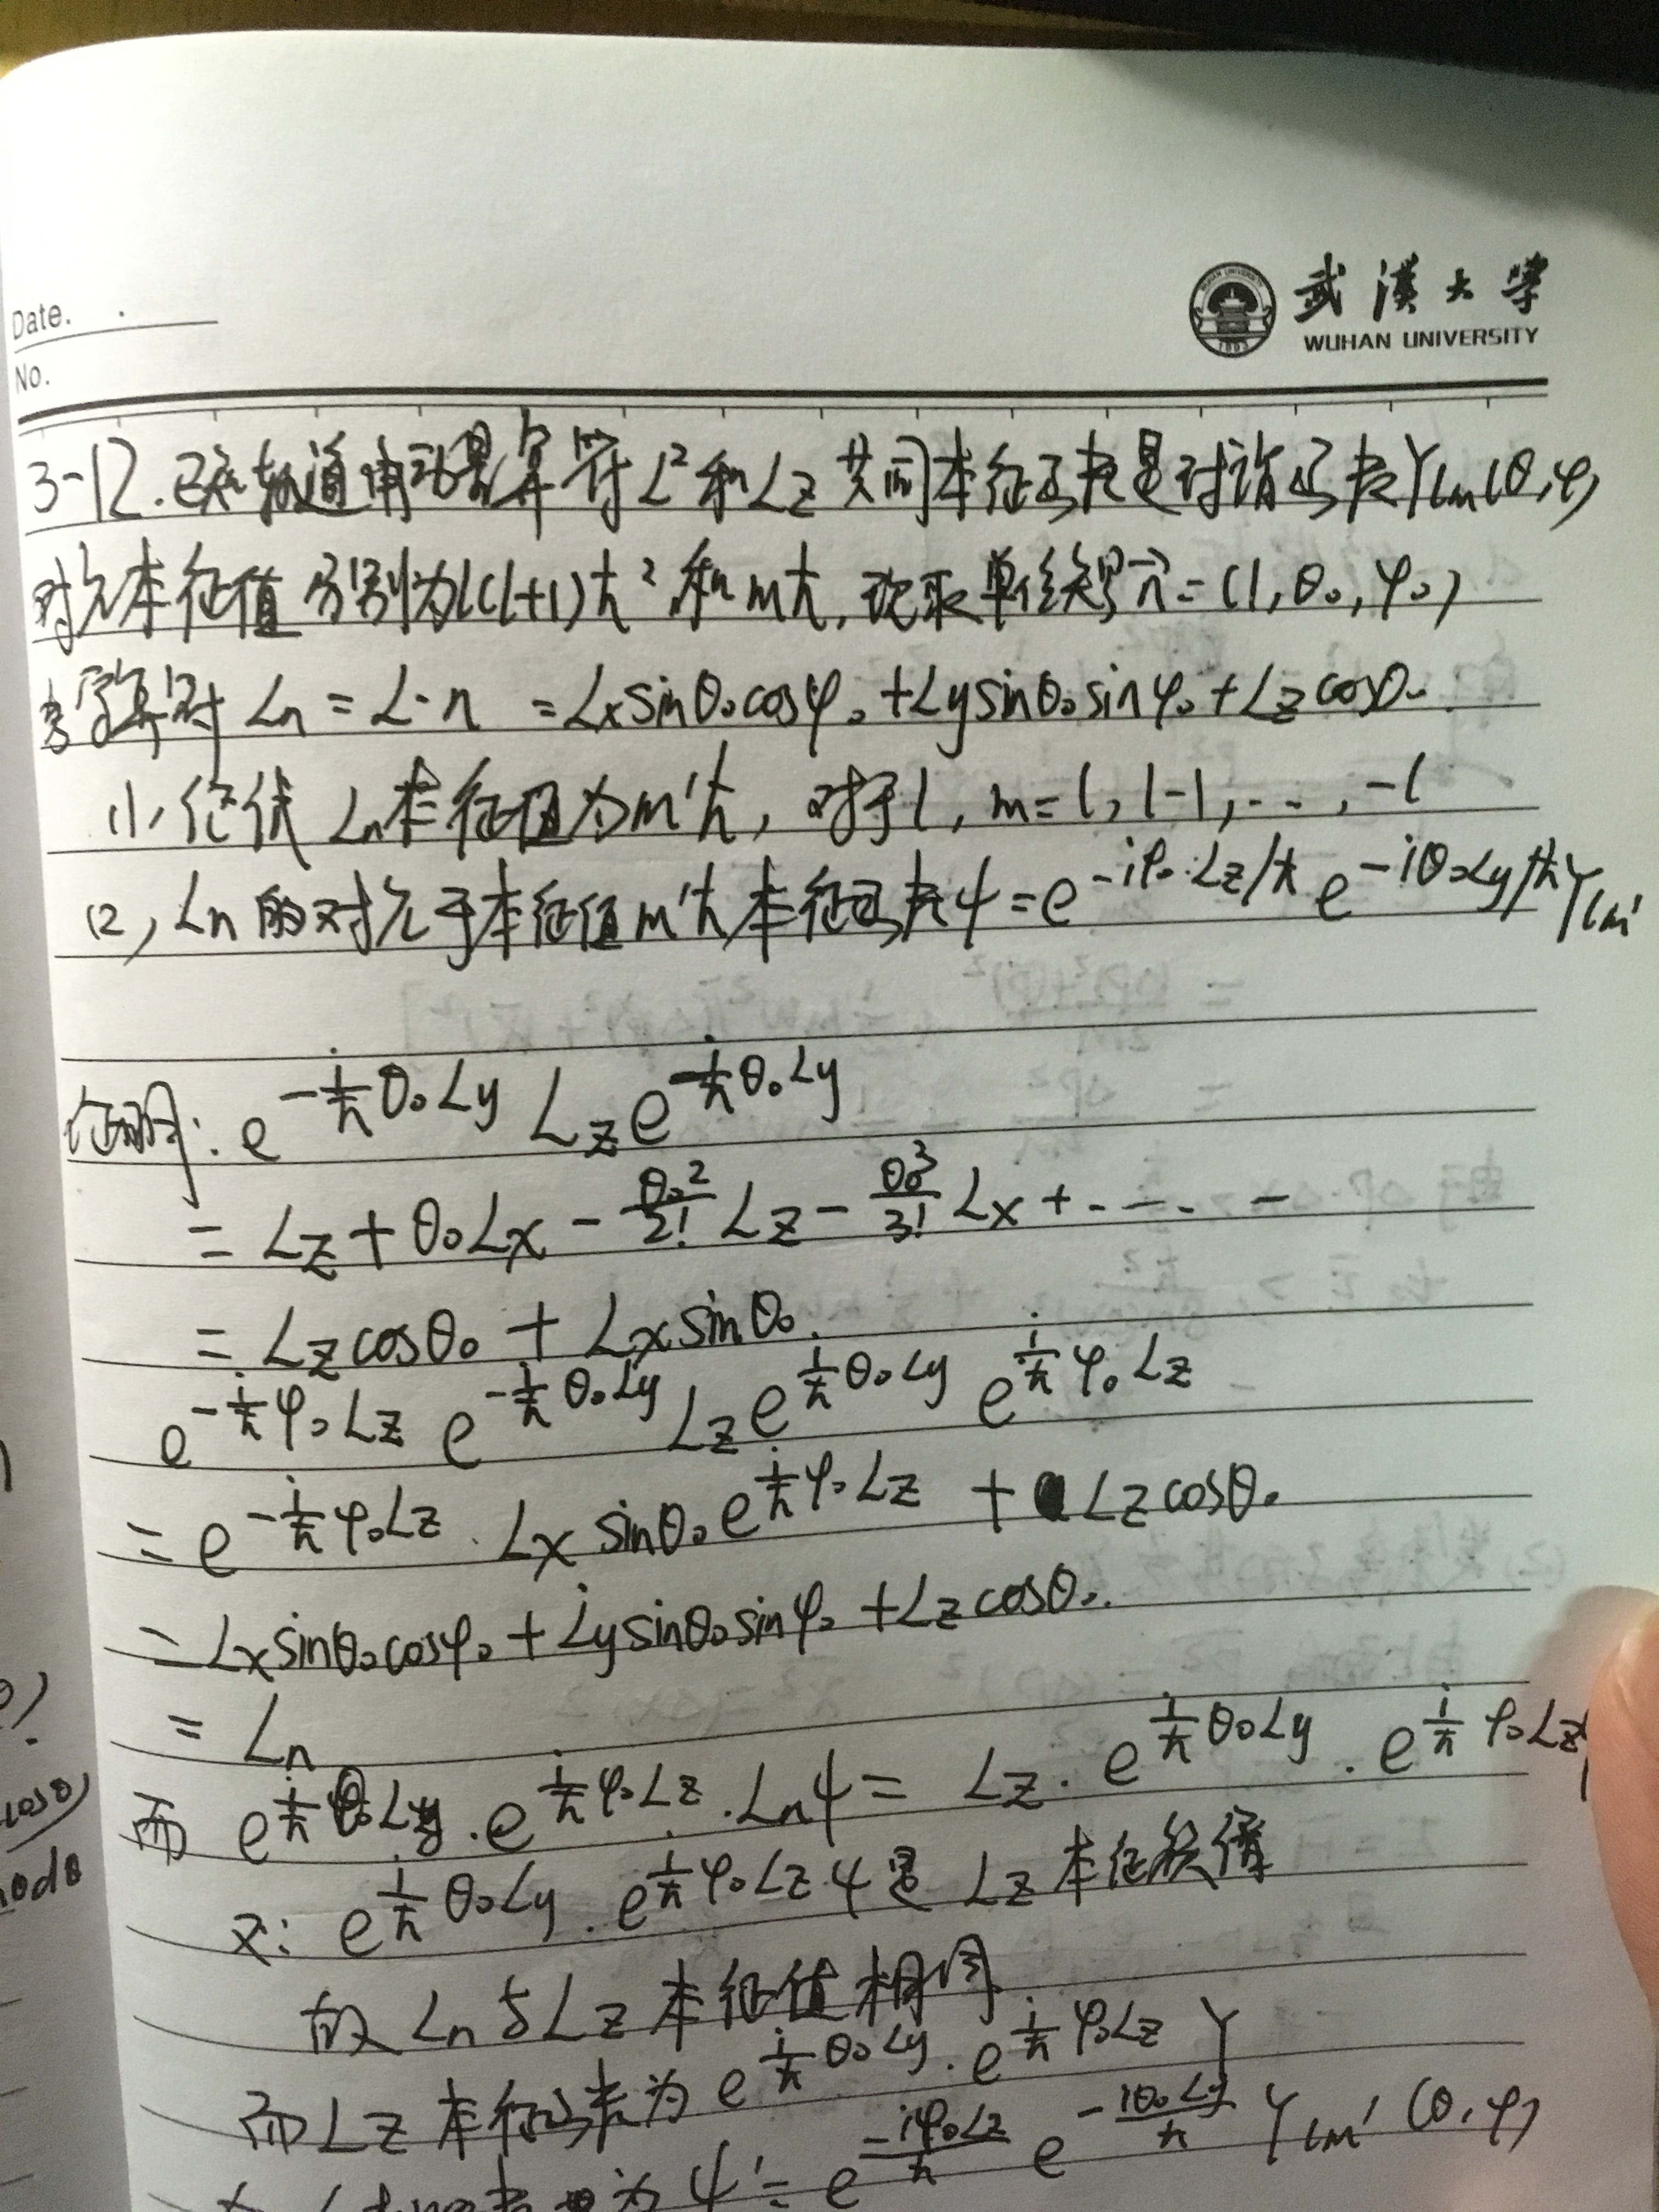 Date.
No.
武漢大學
WUHAN UNIVERSITY
3-12. 已知轨道角动量算符 L² 和 Lz 共同本征函数是球谐函数 Ylm(θ,φ)
对应本征值分别为 l(l+1)ħ² 和 mħ, 现取单位矢 n⃗ = (1, θ₀, φ₀)
Ln = L·n = Lx sinθ₀cosφ₀ + Ly sinθ₀ sinφ₀ + Lz cosθ₀
(1) Ln本征值为 m'ħ, 对于 l, m = l, l-1, ..., -l
(2) Ln 的对应于本征值 m'ħ 本征函数 ψ = e^{-iφ₀·Lz/ħ} e^{-iθ₀Ly/ħ} Ylm'
证明: e^{-i/ħ θ₀Ly} Lz e^{-i/ħ θ₀Ly}
= Lz + θ₀Lx - θ₀²/2! Lz - θ₀³/3! Lx + ......
= Lz cosθ₀ + Lx sinθ₀
e^{-i/ħ φ₀Lz} e^{-i/ħ θ₀Ly} Lz e^{i/ħ θ₀Ly} e^{i/ħ φ₀Lz}
= e^{-i/ħ φ₀Lz} · Lx sinθ₀ e^{i/ħ φ₀Lz} + Lz cosθ₀
= Lx sinθ₀cosφ₀ + Ly sinθ₀ sinφ₀ + Lz cosθ₀
= Ln
而 e^{i/ħ θ₀Ly} · e^{i/ħ φ₀Lz} · Lnψ = Lz · e^{i/ħ θ₀Ly} · e^{i/ħ φ₀Lz}
又: e^{i/ħ θ₀Ly} · e^{i/ħ φ₀Lz} ψ是 Lz 本征
故 Ln 与 Lz 本征值相同
而 Lz 本征函数为 e^{i/ħ θ₀Ly} · e^{i/ħ φ₀Lz} Y
为 ψ' = e^{-iφ₀Lz/ħ} e^{-iθ₀Ly/ħ} Ylm' (θ,φ)